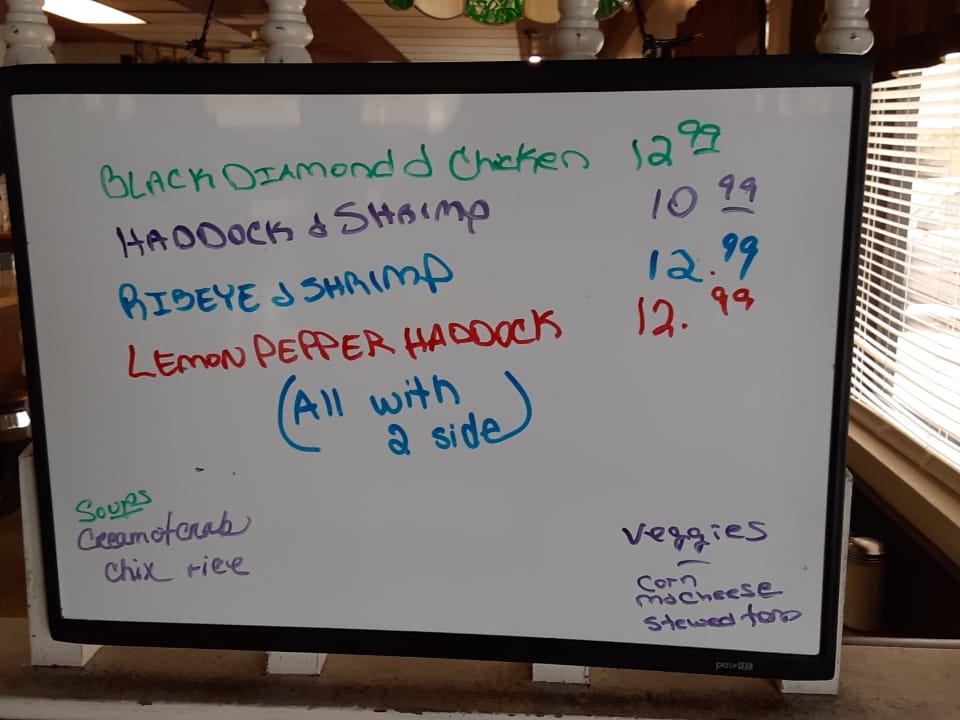 BLACK DIAMOND & Chicken 12 99
HADDOCK & SHRIMP 10 99
RIBEYE & SHRIMP 12.99
LEMON PEPPER HADDOCK 12.99
(All with
2 side)
Soups
Cream of crab
Chix rice
Veggies
Corn
McCheese
Stewed tom
pen+GEAR